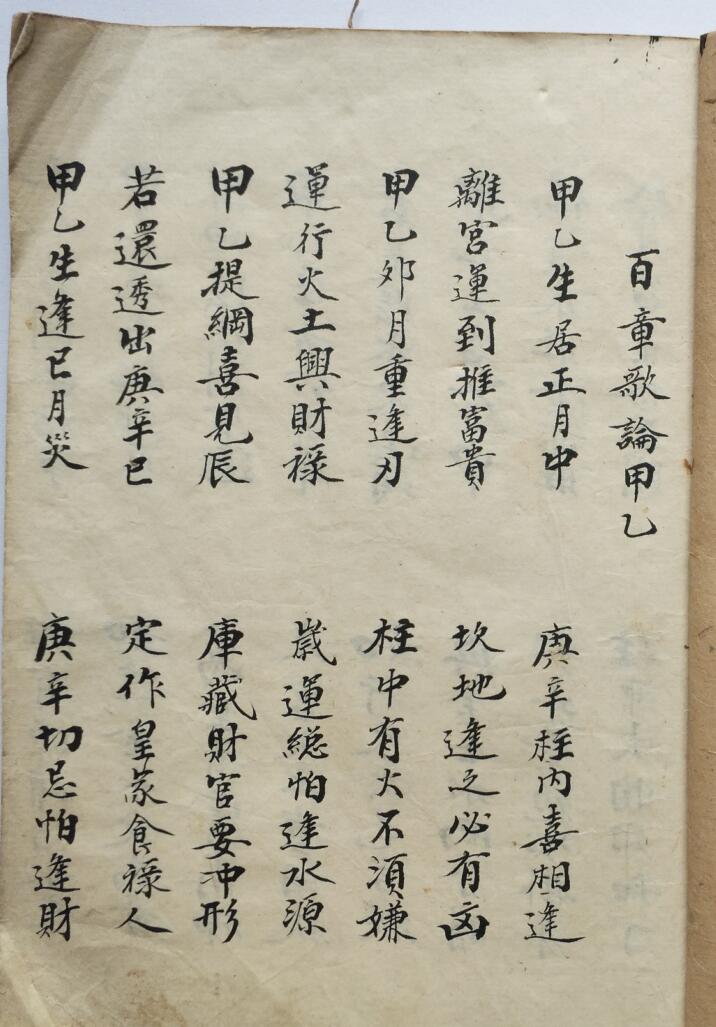 百章歌論甲乙
甲乙生居正月中 庚辛柱内喜相逢
離宮運到推富貴 坎地逢之必有凶
甲乙卯月重逢刃 柱中有火不須嫌
運行火土興財祿 歲運總怕逢水源
甲乙提綱喜見辰 庫藏財官要冲形
若還透出庚辛巳 定作皇家食祿人
甲乙生逢巳月災 庚辛切忌怕逢財